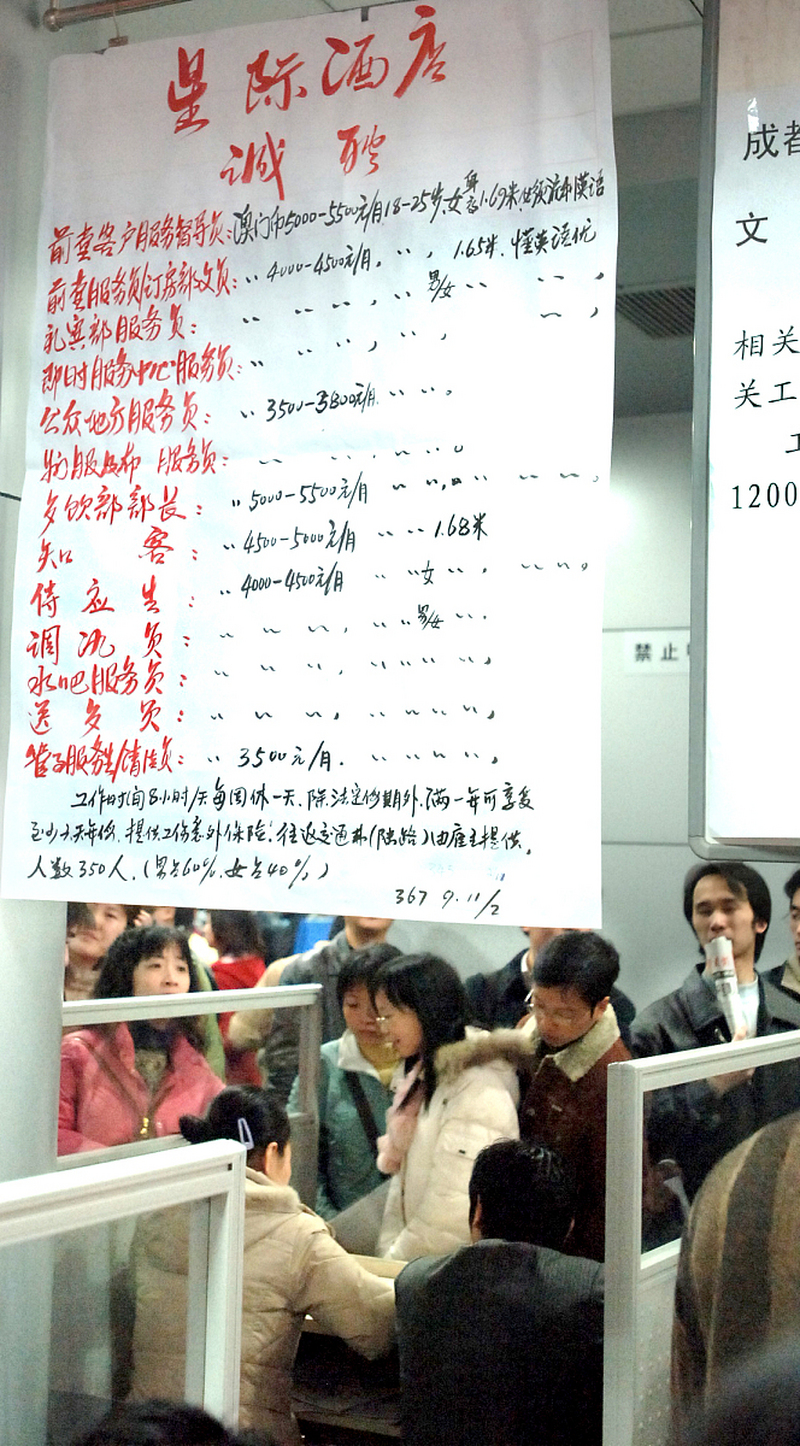 星际酒店
诚聘
前堂客户服务督导员:澳门币5000-5500元/月,18-25岁,女,身高1.69米,必须流利英语
前堂服务员/订房部文员:〃 4000-4500元/月。〃, 1.65米.懂英语优
礼宾部服务员: 〃 〃 〃, 〃 男/女 〃 〃,
即时服务中心服务员:〃 〃 〃, 〃, 〃,
公众地方服务员: 〃 3500-3800元/月. 〃 〃。
制服及布 服务员: 〃 〃. 〃 〃 〃。
夕饮部部长: 〃 5000-5500元/月 〃 〃, 〃 〃 〃 〃.
知 客: 〃 4500-5000元/月 〃 〃 1.68米
侍应生: 〃 4000-4500元/月 〃 〃女〃. 〃 〃。
调汎员: 〃 〃 〃, 〃 〃男/女〃.
水吧服务员: 〃 〃 〃, 〃 〃 〃 〃,
送夕员: 〃 〃 〃, 〃 〃 〃 〃,
管子服务生/清洁员: 〃 3500元/月. 〃 〃 〃 〃,
工作时间8小时/天每周休一天.除法定假期外.满一年可享受
至少 天年假.提供工伤意外保险.往返交通 (陆路)由雇主提供.
人数350人.(男占60%.女占40%)
367 9.11/2
成都
文
相关
关工
工
1200
禁止